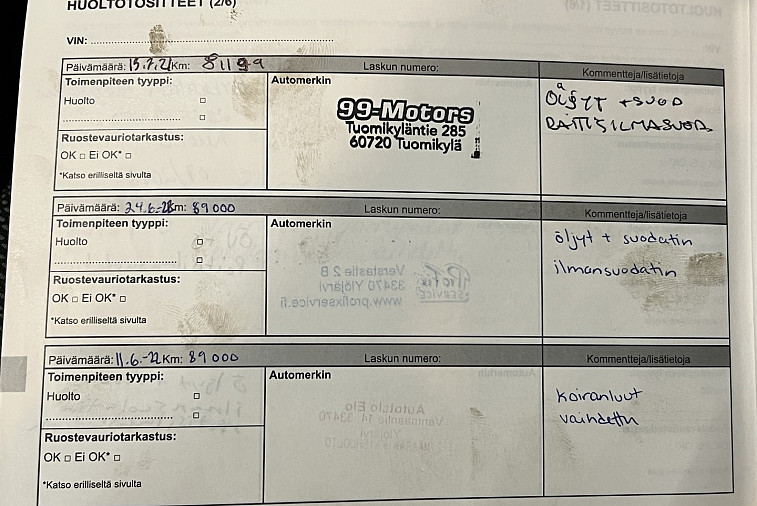 HUOLTOTOSITTEET (2/6)
VIN:
Päivämäärä: 15.7.21 Km: 81199 Laskun numero: Kommentteja/lisätietoja
Toimenpiteen tyyppi: Automerkin
Huolto
99-Motors
Tuomikyläntie 285
60720 Tuomikylä
ÖLJYT + SUOD
RAITISILMASUOD.
Ruostevauriotarkastus:
OK □ Ei OK* □
*Katso erilliseltä sivulta
Päivämäärä: 24.6.-22 Km: 89000 Laskun numero: Kommentteja/lisätietoja
Toimenpiteen tyyppi: Automerkin
Huolto
öljyt + suodatin
ilmansuodatin
Ruostevauriotarkastus:
OK □ Ei OK* □
*Katso erilliseltä sivulta
Päivämäärä: 11.6.-22 Km: 89000 Laskun numero: Kommentteja/lisätietoja
Toimenpiteen tyyppi: Automerkin
Huolto
koiranluut
vaihdettu
Ruostevauriotarkastus:
OK □ Ei OK* □
*Katso erilliseltä sivulta